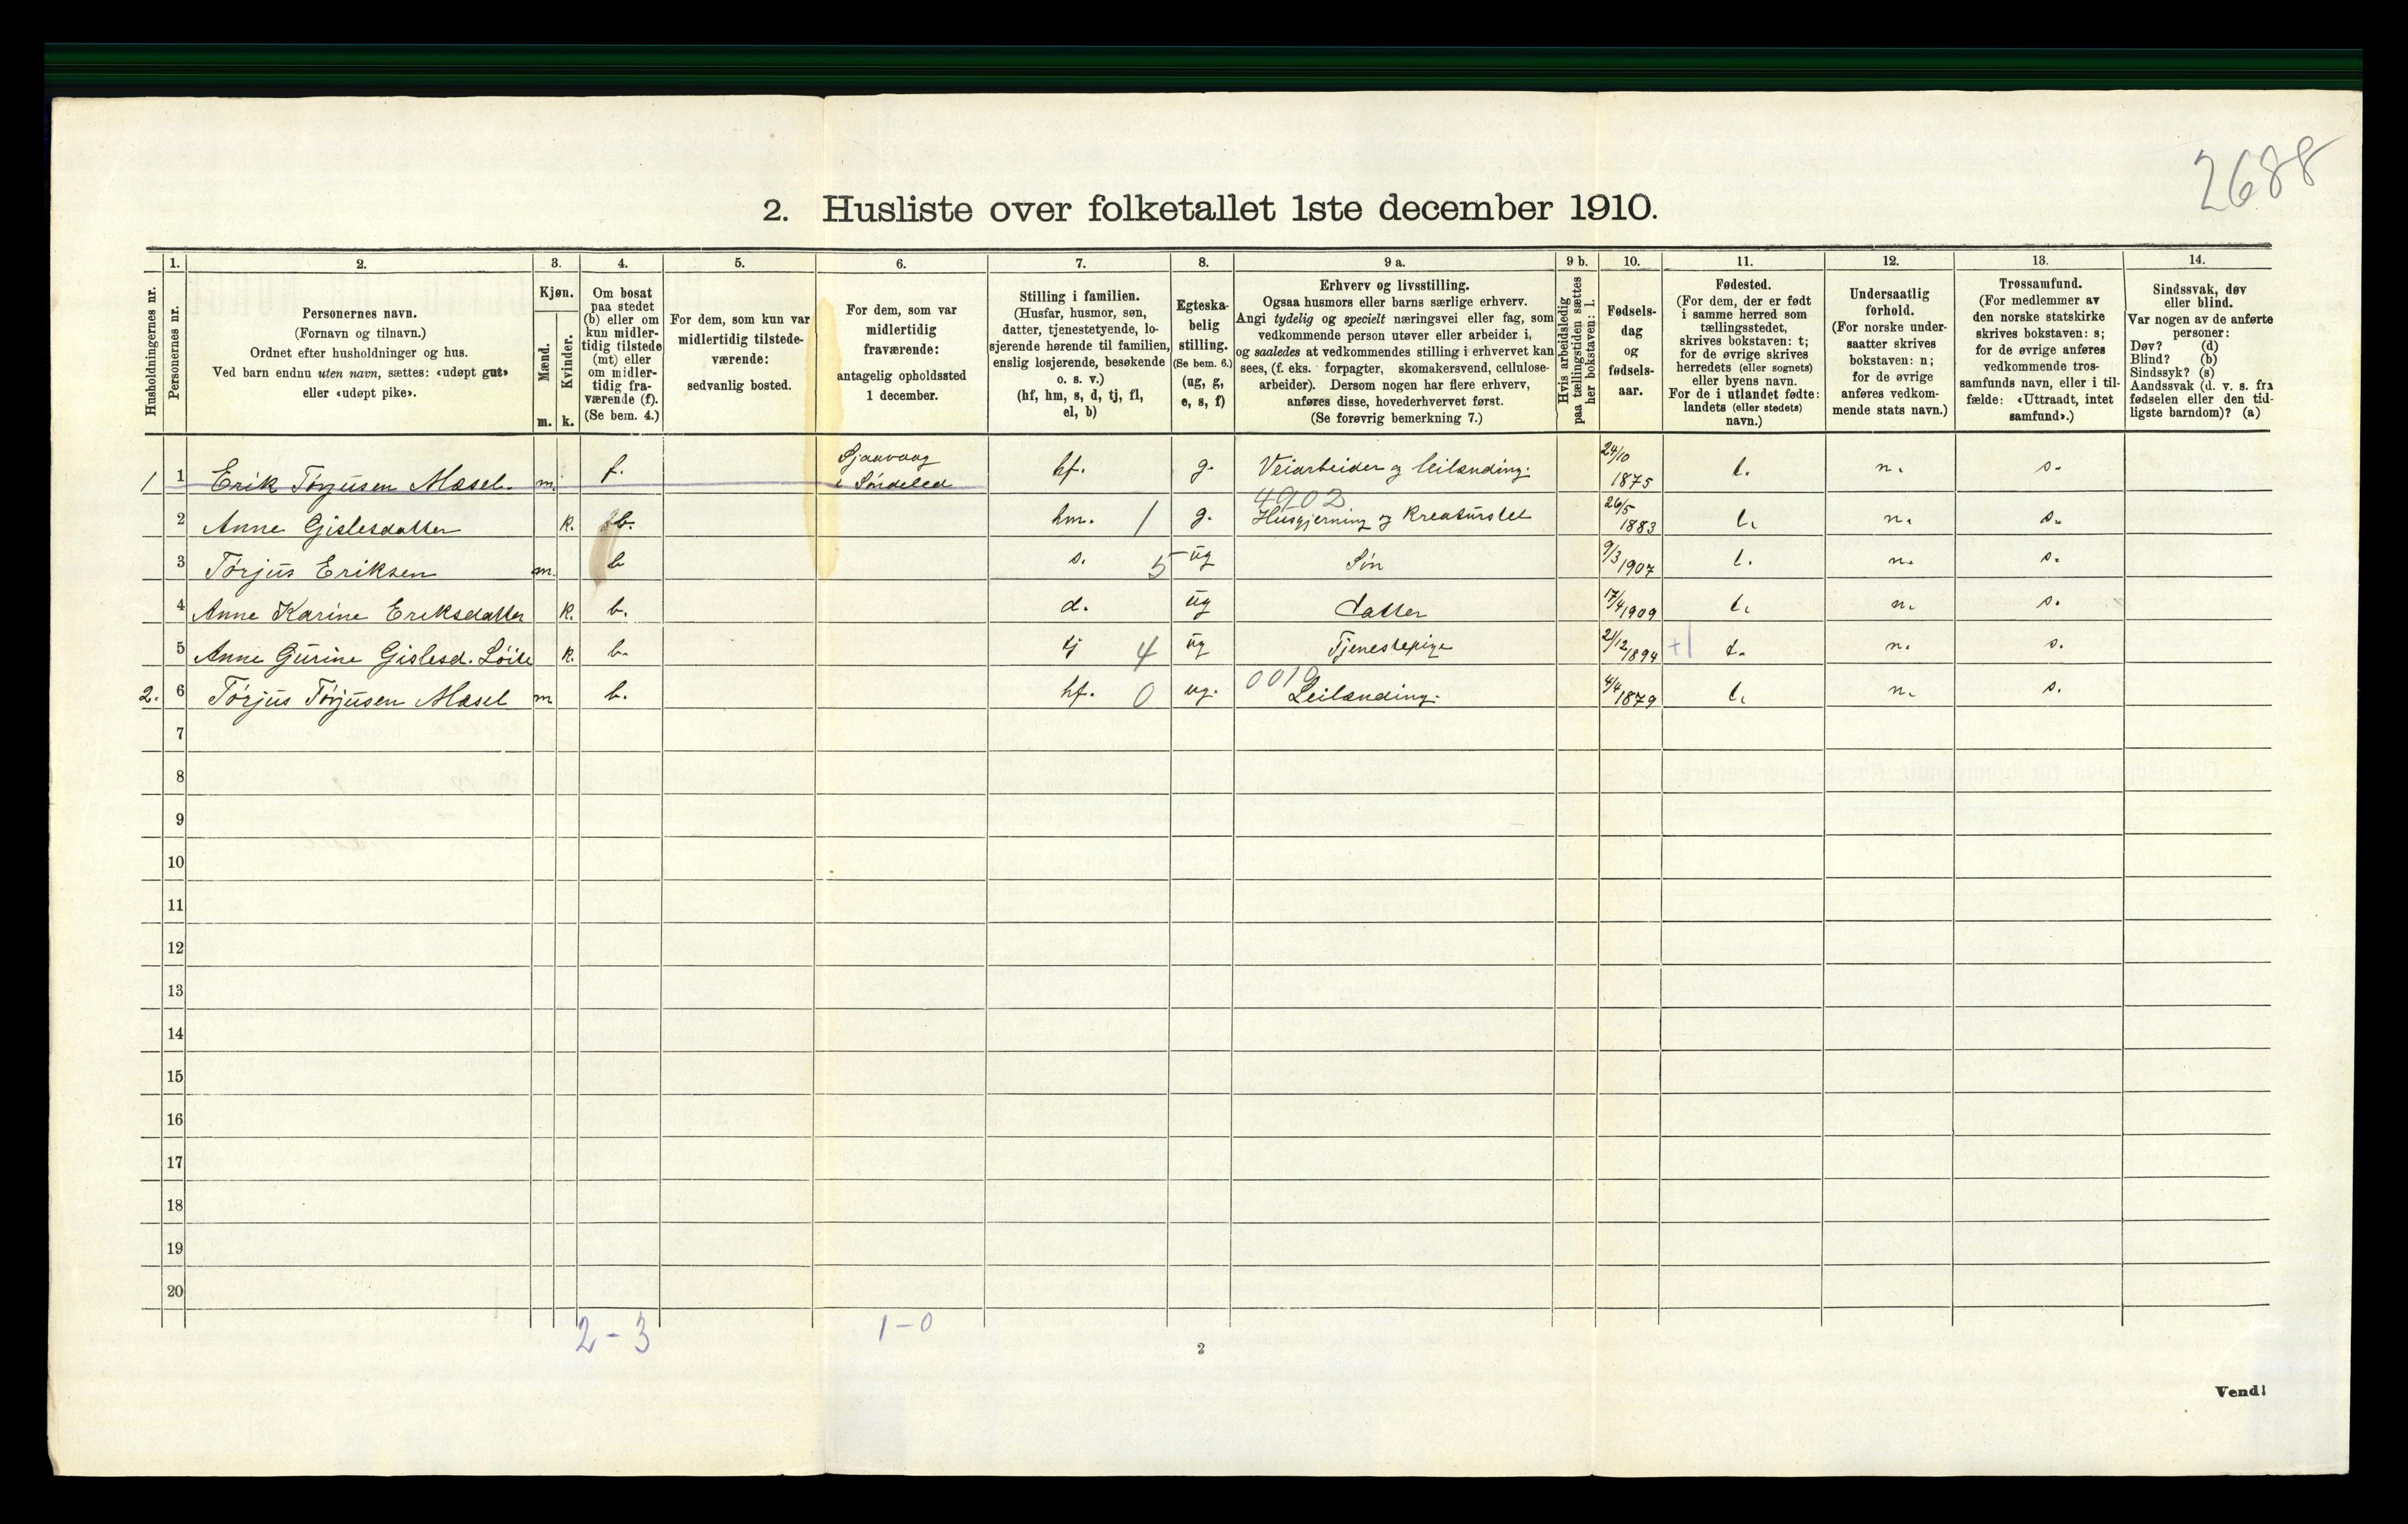 2688
2. Husliste over folketallet 1ste december 1910.
Husholdningernes nr.
1.
Personernes nr.
2.
Personernes navn.
(Fornavn og tilnavn.)
Ordnet efter husholdninger og hus.
Ved barn endnu uten navn, sættes: «udøpt gut»
eller «udøpt pike».
3.
Kjøn.
Mænd.
m.
Kvinder.
k.
4.
Om bosat
paa stedet
(b) eller om
kun midler-
tidig tilstede
(mt) eller
om midler-
tidig fra-
værende (f).
(Se bem. 4.)
5.
For dem, som kun var
midlertidig tilstede-
værende:
sedvanlig bosted.
6.
For dem, som var
midlertidig
fraværende:
antagelig opholdssted
1 december.
7.
Stilling i familien.
(Husfar, husmor, søn,
datter, tjenestetyende, lo-
sjerende hørende til familien,
enslig losjerende, besøkende
o. s. v.)
(hf, hm, s, d, tj, fl,
el, b)
8.
Egteska-
belig
stilling.
(Se bem. 6.)
(ug, g,
e, s, f)
9 a.
Erhverv og livsstilling.
Ogsaa husmors eller barns særlige erhverv.
Angi tydelig og specielt næringsvei eller fag, som
vedkommende person utøver eller arbeider i,
og saaledes at vedkommendes stilling i erhvervet kan
sees, (f. eks. forpagter, skomakersvend, cellulose-
arbeider). Dersom nogen har flere erhverv,
anføres disse, hovederhvervet først.
(Se forøvrig bemerkning 7.)
9 b.
Hvis arbeidsledig
paa tællingstiden sættes
her bokstaven: l.
10.
Fødsels-
dag
og
fødsels-
aar.
11.
Fødested.
(For dem, der er født
i samme herred som
tællingsstedet,
skrives bokstaven: t;
for de øvrige skrives
herredets (eller sognets)
eller byens navn.
For de i utlandet fødte:
landets (eller stedets)
navn.)
12.
Undersaatlig
forhold.
(For norske under-
saatter skrives
bokstaven: n;
for de øvrige
anføres vedkom-
mende stats navn.)
13.
Trossamfund.
(For medlemmer av
den norske statskirke
skrives bokstaven: s;
for de øvrige anføres
vedkommende tros-
samfunds navn, eller i til-
fælde: «Uttraadt, intet
samfund».)
14.
Sindssvak, døv
eller blind.
Var nogen av de anførte
personer:
Døv? (d)
Blind? (b)
Sindssyk? (s)
Aandssvak (d. v. s. fra
fødselen eller den tid-
ligste barndom)? (a)
1 1 Erik Tørjusen Mæsel. m. f. Sjaavaag i Søndeled hf. g. Veiarbeider og leilænding. 24/10 1875 t. n. s.
2 Anne Gislesdatter k. b. hm. 1 g. 4902 Husgjerning og Kreaturstel 26/5 1883 t. n. s.
3 Tørjus Eriksen m. b s. 5 ug Søn 9/3 1907 t. n. s.
4 Anne Karine Eriksdatter k. b. d. ug datter 17/4 1909 t. n. s.
5 Anne Gurine Gislesd. Løite k. b. tj 4 ug Tjenestepige 21/12 1894 +1 t. n. s.
2. 6 Tørjus Tørjusen Mæsel m b. hf. 0 ug. 0019 Leilænding. 4/4 1879 t. n. s.
7
8
9
10
11
12
13
14
15
16
17
18
19
20
2-3
1-0
2
Vend!